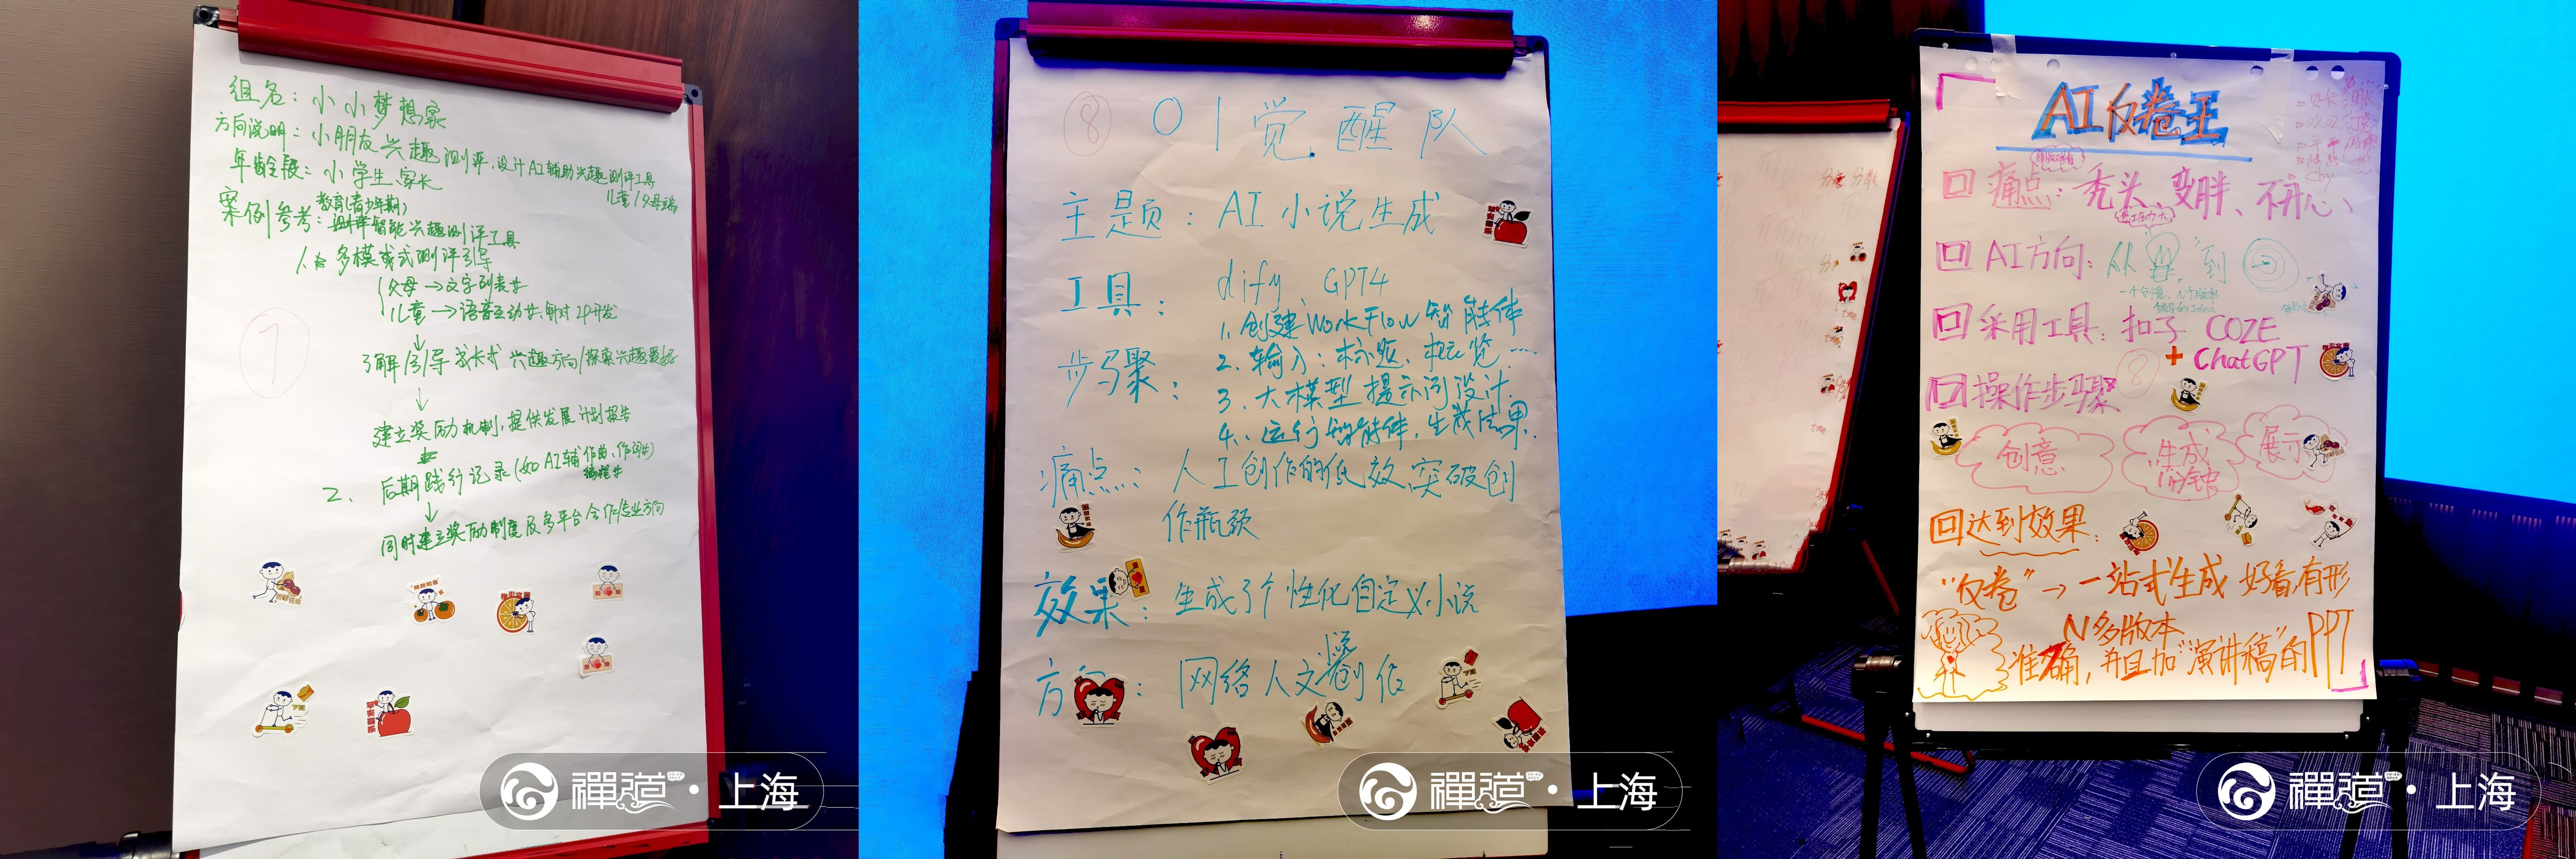 组名：小小梦想家
方向说明：小朋友兴趣测评，设计AI辅助兴趣测评工具
儿童/父母端
年龄层：小学生 家长
教育(青少年期)
案例参考：智能兴趣测评工具
1. 多模式测评引导
父母→文字列表
儿童→语音互动
↓
了解/引导 兴趣方向/探索兴趣
↓
建立奖励机制，提供发展计划报告
2. 后期践行记录(如AI辅作曲、作词
编程
↓
同时建立奖励制度及多平台合作 方向
7
禪道·上海
⑧
01觉醒队
主题：AI小说生成
工具：dify、GPT4
步骤：
1. 创建WorkFlow智能体
2. 输入：标题、概览…
3. 大模型提示词设计.
4. 运行智能体，生成结果.
痛点：人工创作的低效,突破创
作瓶颈
效果：生成了个性化自定义小说
小说
方向：网络人文 创作
禪道·上海
AI仅卷王
痛点：秃头、变胖、不开心、
AI方向：从 到
采用工具：扣子 COZE
+ ChatGPT
操作步骤
8
创意
生成
展示
达到效果：
“仅卷”→一站式生成 好看,有形
N多版本
准确，并且加“演讲稿”的PPT
禪道·上海